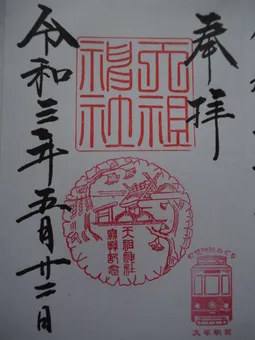 奉拝
天祖神社
天祖神社
参拝記念
大塚駅前
令和三年五月廿二日